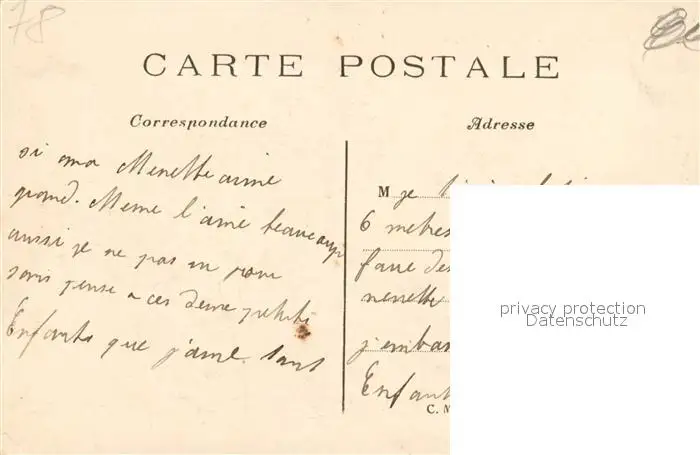 78
CARTE POSTALE
Correspondance
Adresse
si ma Nenette aime
grand. Meme l'aime beaucoup
aussi je ne pas un jour
sans pense a ces deux petits
Enfants que j'aime tant
M je
6 metres
faire des
nenette
j'embas
Enfant
C. M
privacy protection
Datenschutz